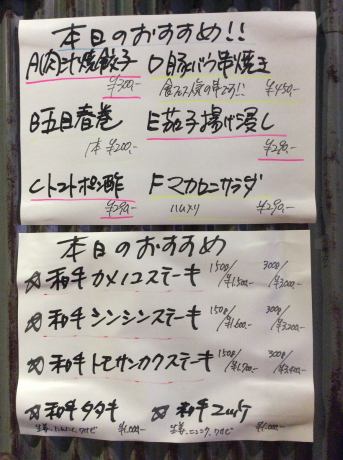 本日のおすすめ!!
A肉汁焼餃子
¥300-
D豚バラ串焼き
¥450-
B五目春巻
1本 ¥200-
E茄子揚げ浸し
¥280-
Cトマトポン酢
¥290-
Fマカロニサラダ
ハム入り ¥290-
本日のおすすめ
☆和牛カメノコステーキ 150g/¥1,500- 300g/¥3,000-
☆和牛シンシンステーキ 150g/¥1,600- 300g/¥3,200-
☆和牛トモサンカクステーキ 150g/¥1,700- 300g/¥3,400-
☆和牛タタキ
生姜、ニンニク、ワサビ ¥1,000-
☆和牛ユッケ
生姜、ニンニク、ワサビ ¥1,000-